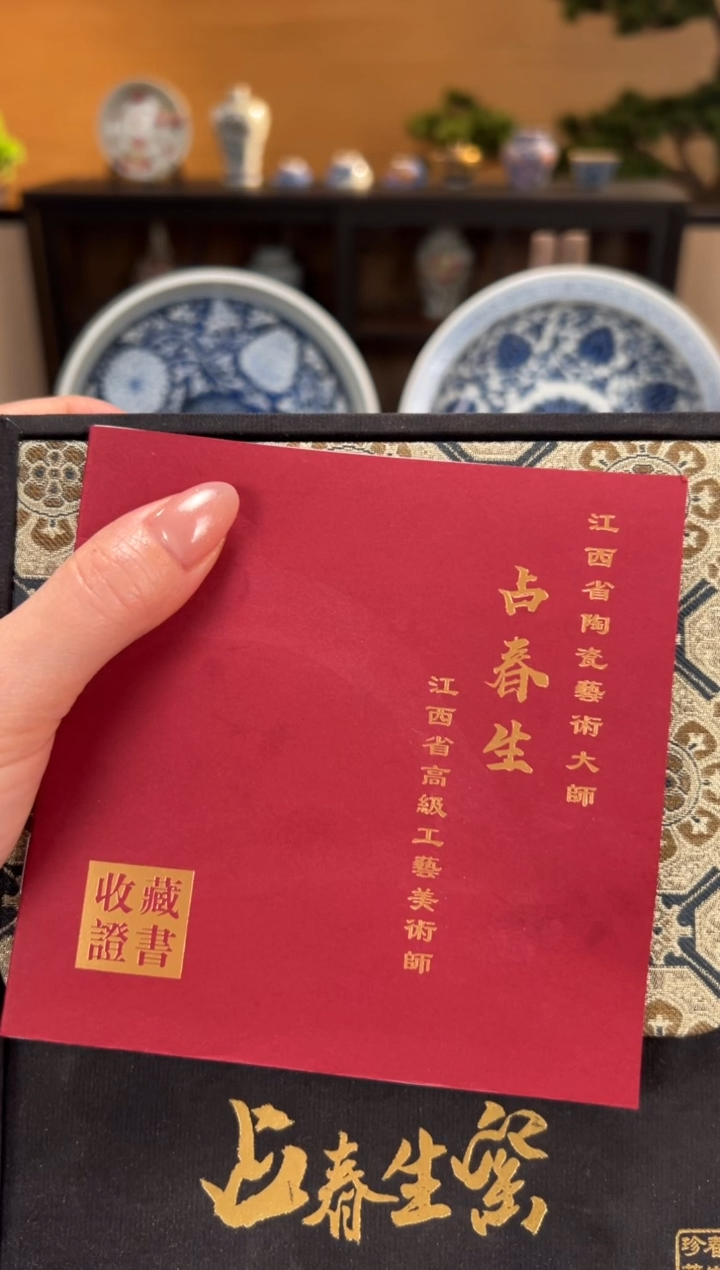 江西省陶瓷藝術大師
占春生
江西省高級工藝美術師
收藏
證書
占春生窑